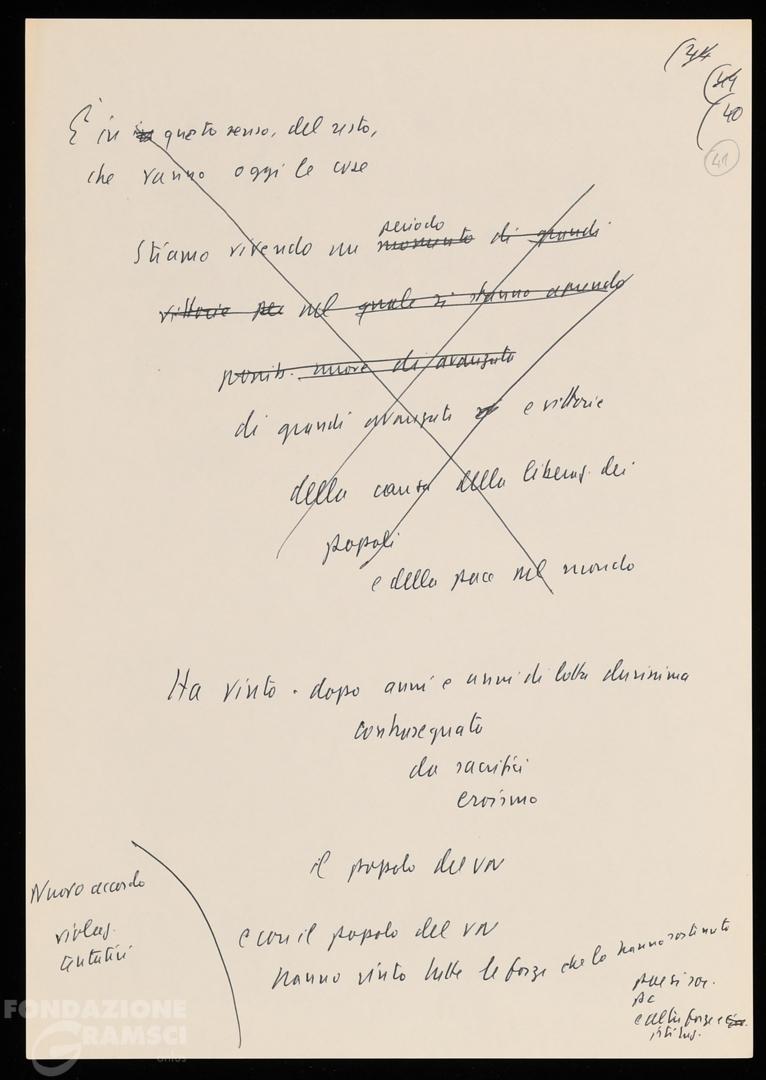 (34
(39
(40
41
È in questo senso, del resto,
che vanno oggi le cose
Stiamo vivendo un
periodo
momento di grandi
vittorie per nel quale si stanno aprendo
possib. nuove di avanzata
di grandi avanzate e vittorie
della causa della liberaz. dei
popoli
e della pace nel mondo
Ha vinto. dopo anni e anni di lotta durissima
contrassegnata
da sacrifici
eroismo
il popolo del VN
e con il popolo del VN
hanno vinto tutte le forze che lo hanno sostenuto
paesi soc.
PC
e altre forze e
Nuovo accordo
violaz.
tentativi
FONDAZIONE
GRAMSCI
onlus